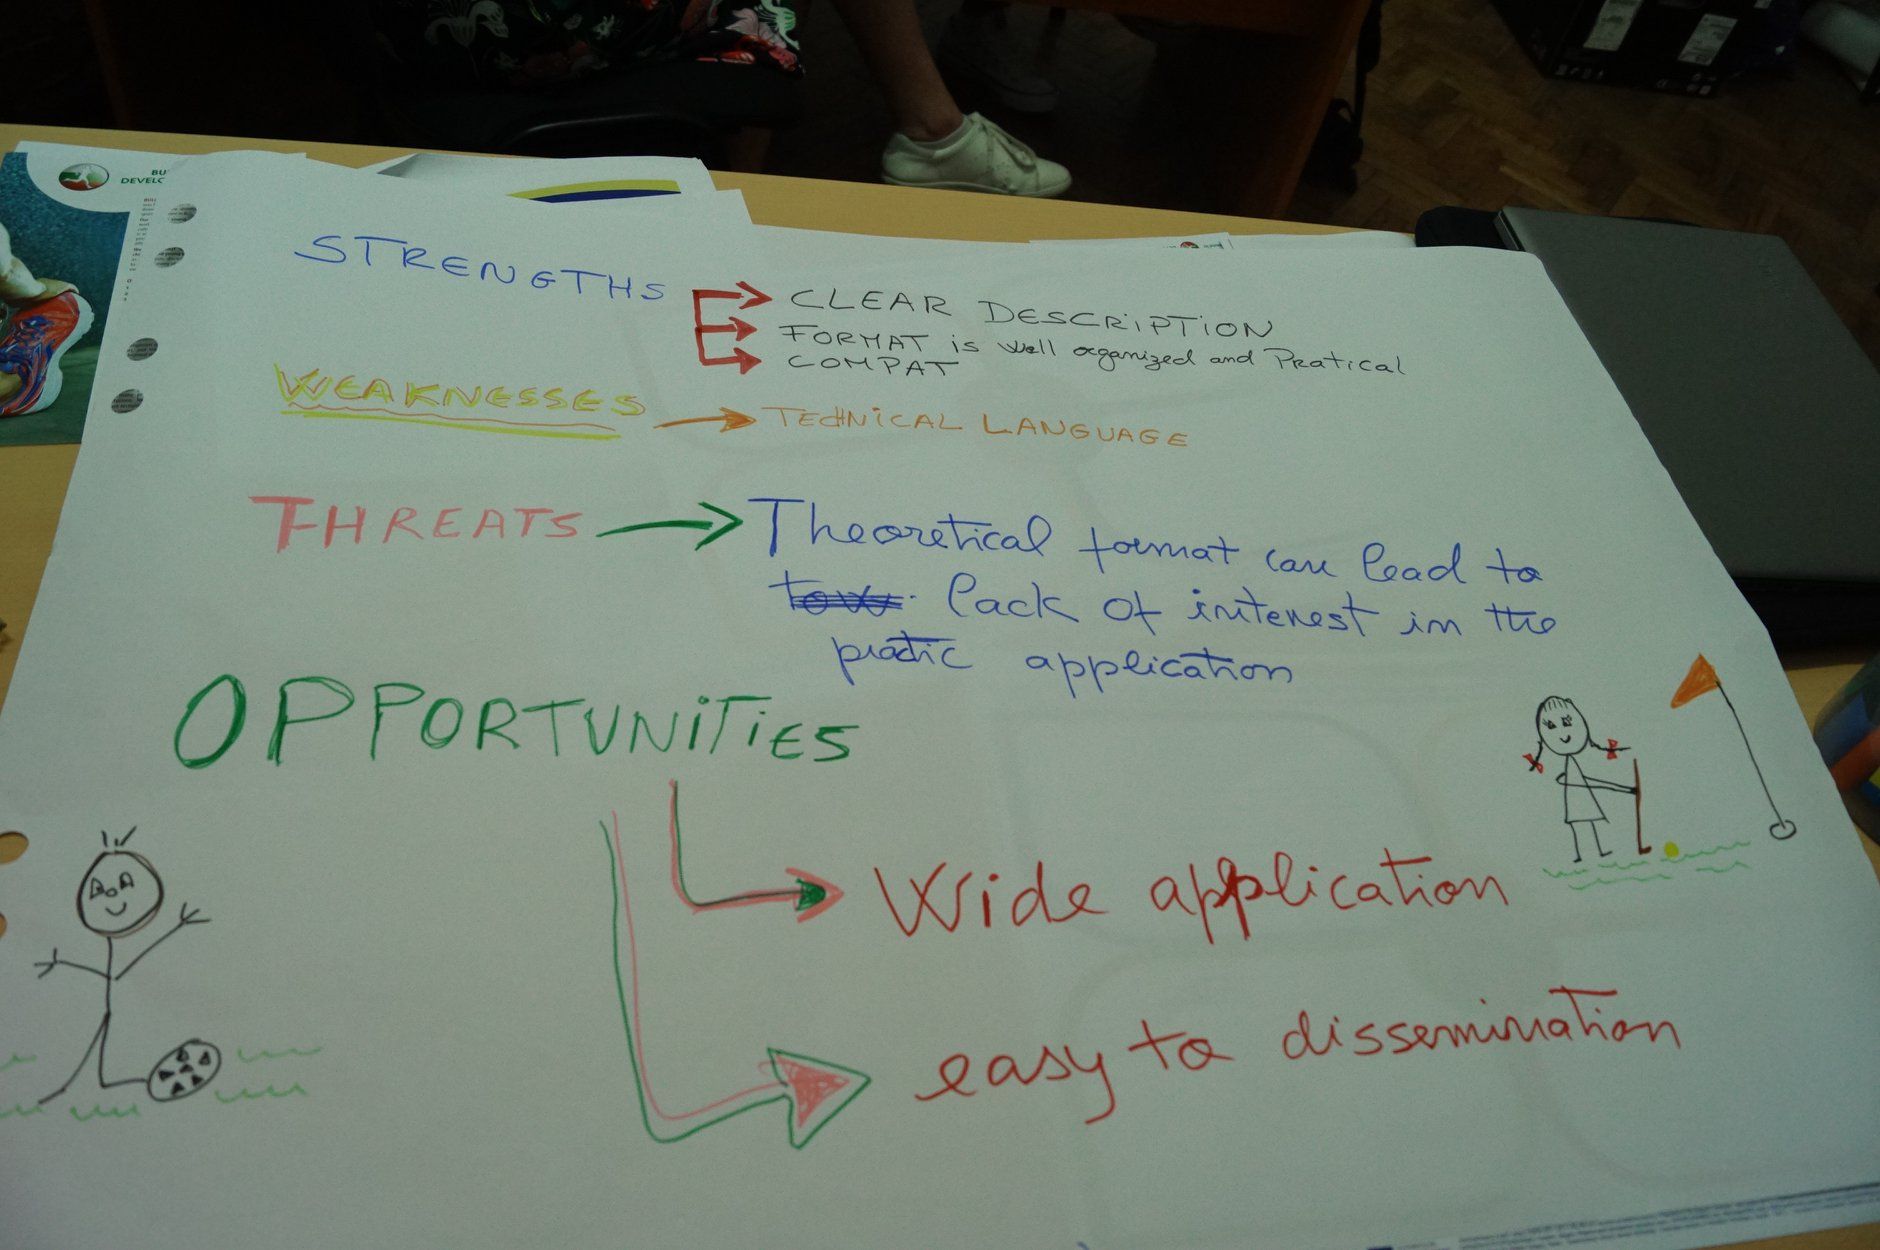 BU
DEVELO
STRENGTHS
CLEAR DESCRIPTION
FORMAT is well organized and Pratical
COMPAT
WEAKNESSES
TECHNICAL LANGUAGE
THREATS
Theoretical format can lead to
lack of interest in the
pratic application
OPPORTUNITIES
Wide application
easy to dissemination